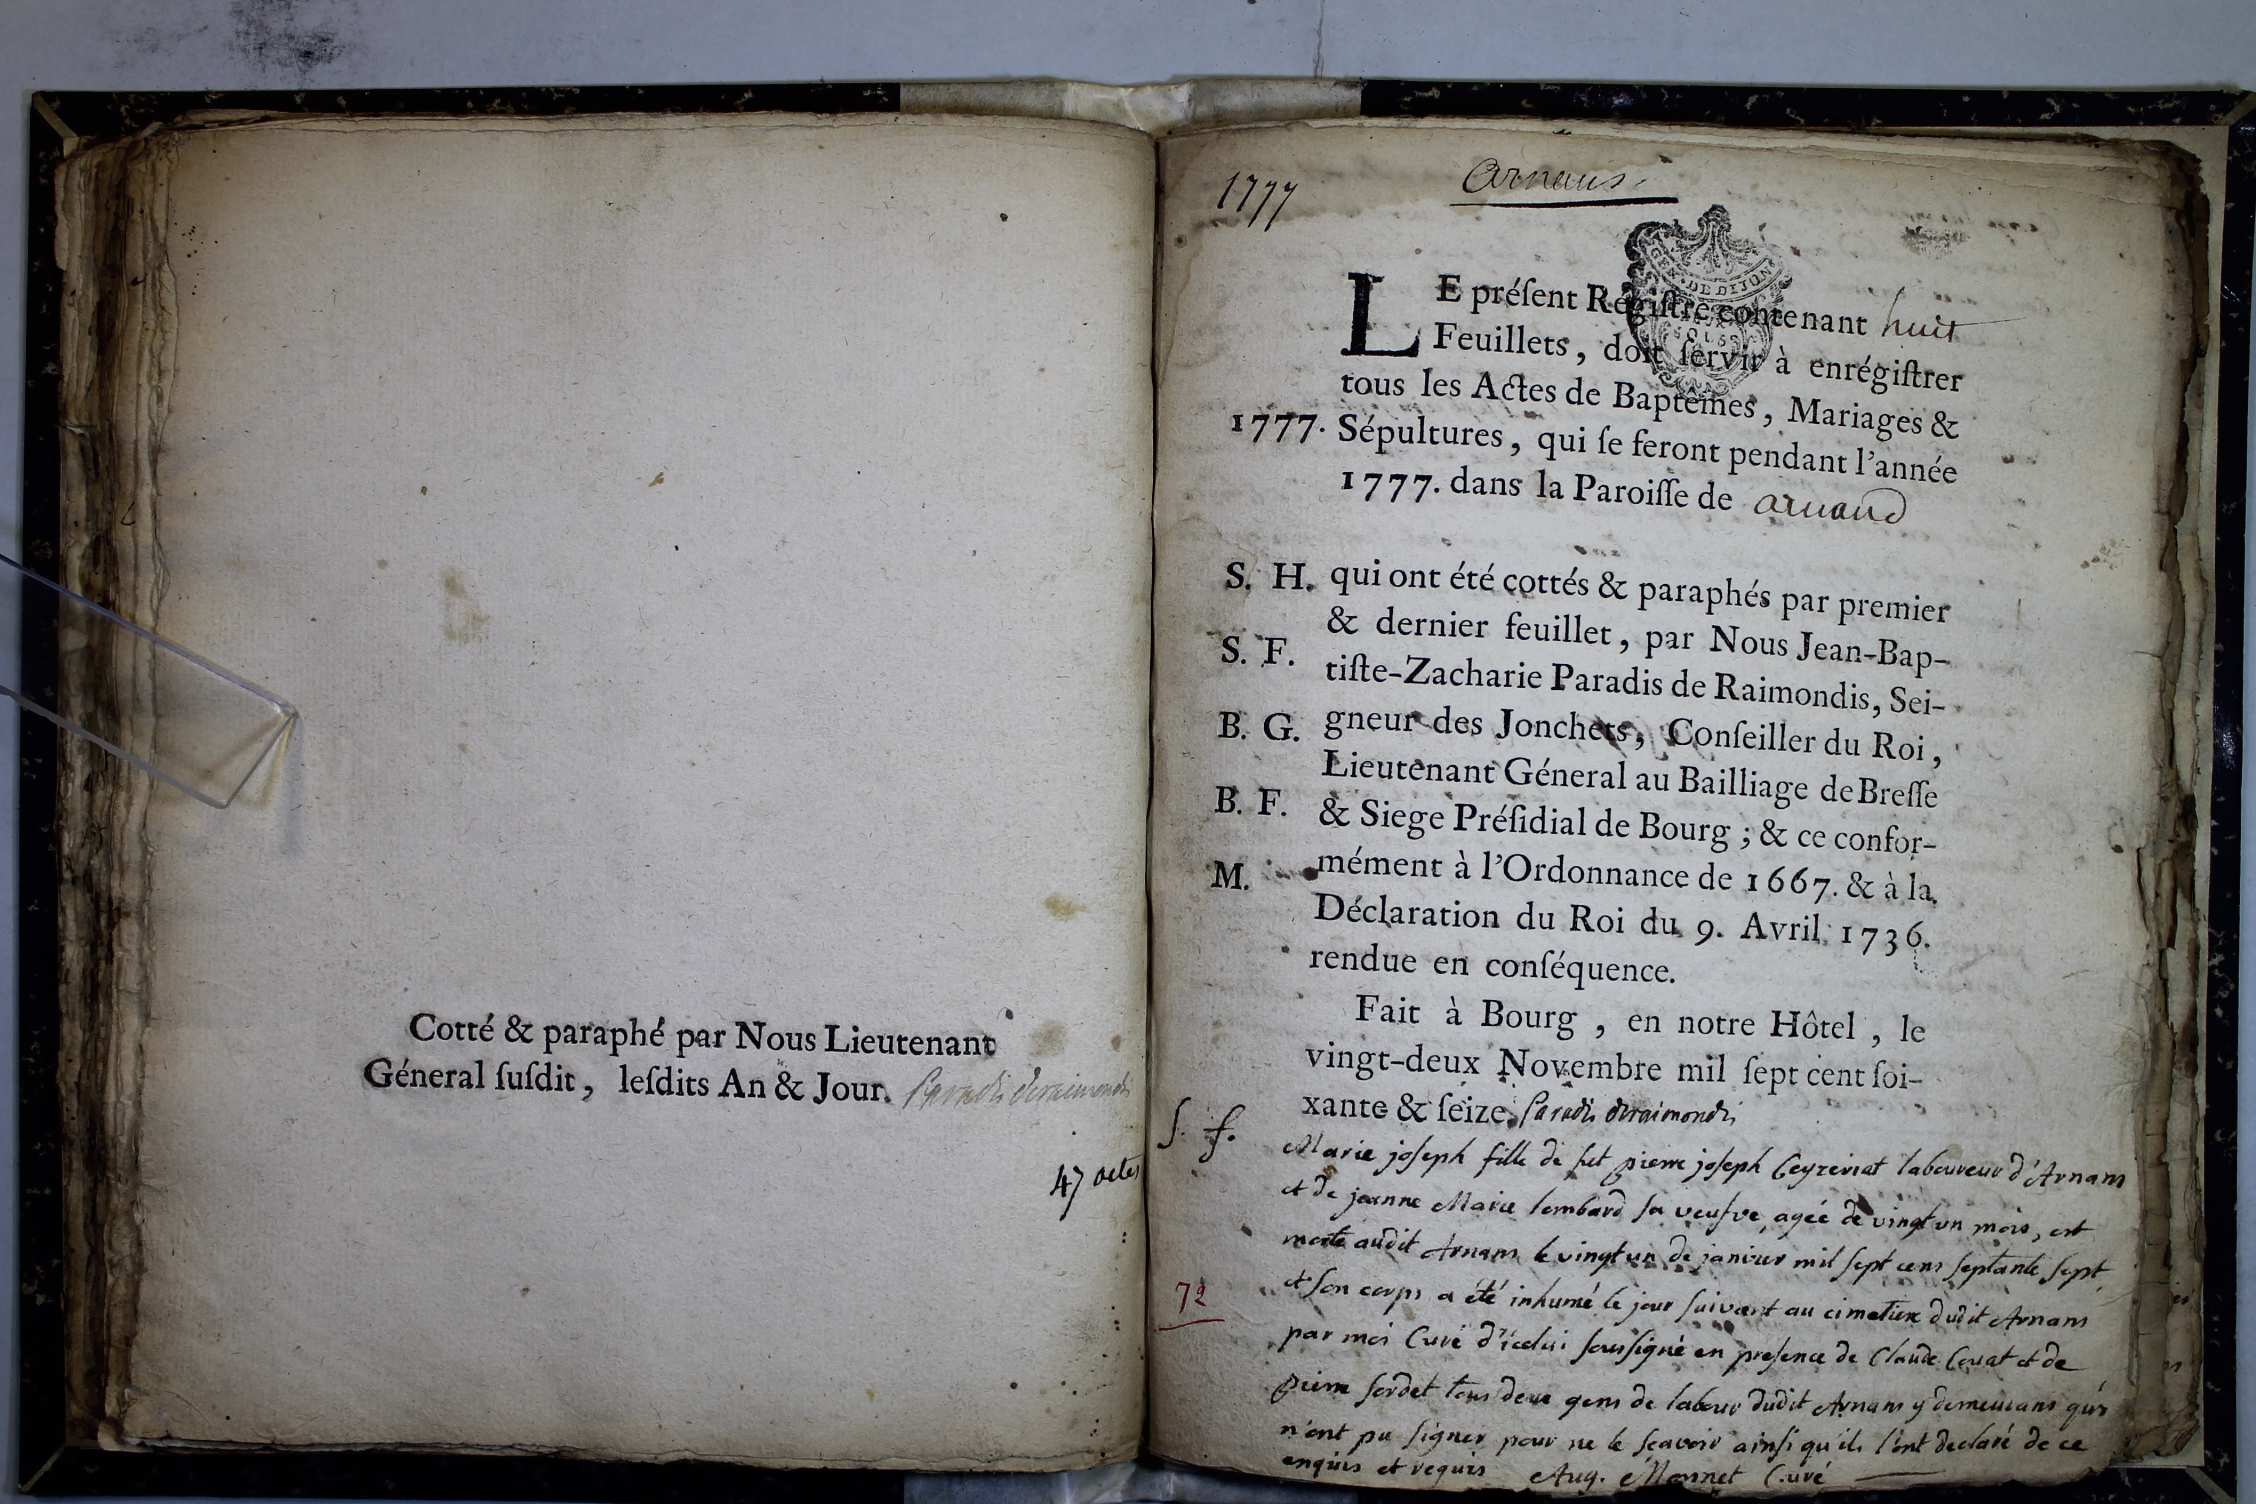 Cotté & paraphé par Nous Lieutenant
Géneral ſuſdit, leſdits An & Jour. Paradis deraimondis
47 actes
1777
Arnans
GEN. DE DIJON
LE préſent Régiſtre contenant huit
Feuillets, doit ſervir à enrégiſtrer
tous les Actes de Baptêmes, Mariages &
1777. Sépultures, qui ſe feront pendant l'année
1777. dans la Paroiſſe de arnand
S. H. qui ont été cottés & paraphés par premier
& dernier feuillet, par Nous Jean-Bap-
S. F. tiſte-Zacharie Paradis de Raimondis, Sei-
B. G. gneur des Jonchets, Conſeiller du Roi,
Lieutenant Géneral au Bailliage de Breſſe
B. F. & Siege Préſidial de Bourg ; & ce confor-
M. mément à l'Ordonnance de 1667. & à la
Déclaration du Roi du 9. Avril 1736.
rendue en conſéquence.
Fait à Bourg, en notre Hôtel, le
vingt-deux Novembre mil ſept cent ſoi-
xante & ſeize. Paradis deraimondis
S. f.
Marie joſeph fille de fut pierre joſeph Ceyzeriat laboureur d'Arnans
et de jeanne Marie lombard ſa veuſve, agée de vingt un mois, est
morte audit Arnans le vingt un de janvier mil ſept cens ſeptante ſept
72
et ſon corps a été inhumé le jour ſuivant au cimetiere dudit Arnans
par moi Curé d'icelui ſouſſigné en preſence de Claude Couat et de
pierre ſordet tous deux gens de labour dudit Arnans y demeurans qui
n'ont pu ſigner pour ne le ſcavoir ainſi qu'ils l'ont declaré de ce
enquis et requis Aug. Monnet Curé